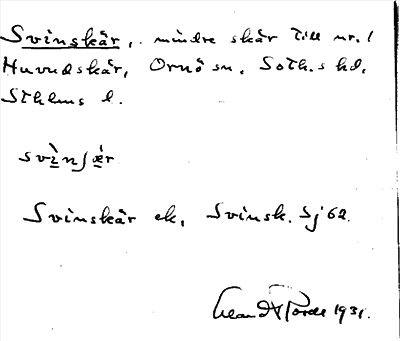 Svinskär, mindre skär till nr. 1
Huvudskär, Ornö sn, Soth.s hd,
Sthlms l.
svìnʃǽr
Svinskär ek, Svinsk. Sj 62.
1931.